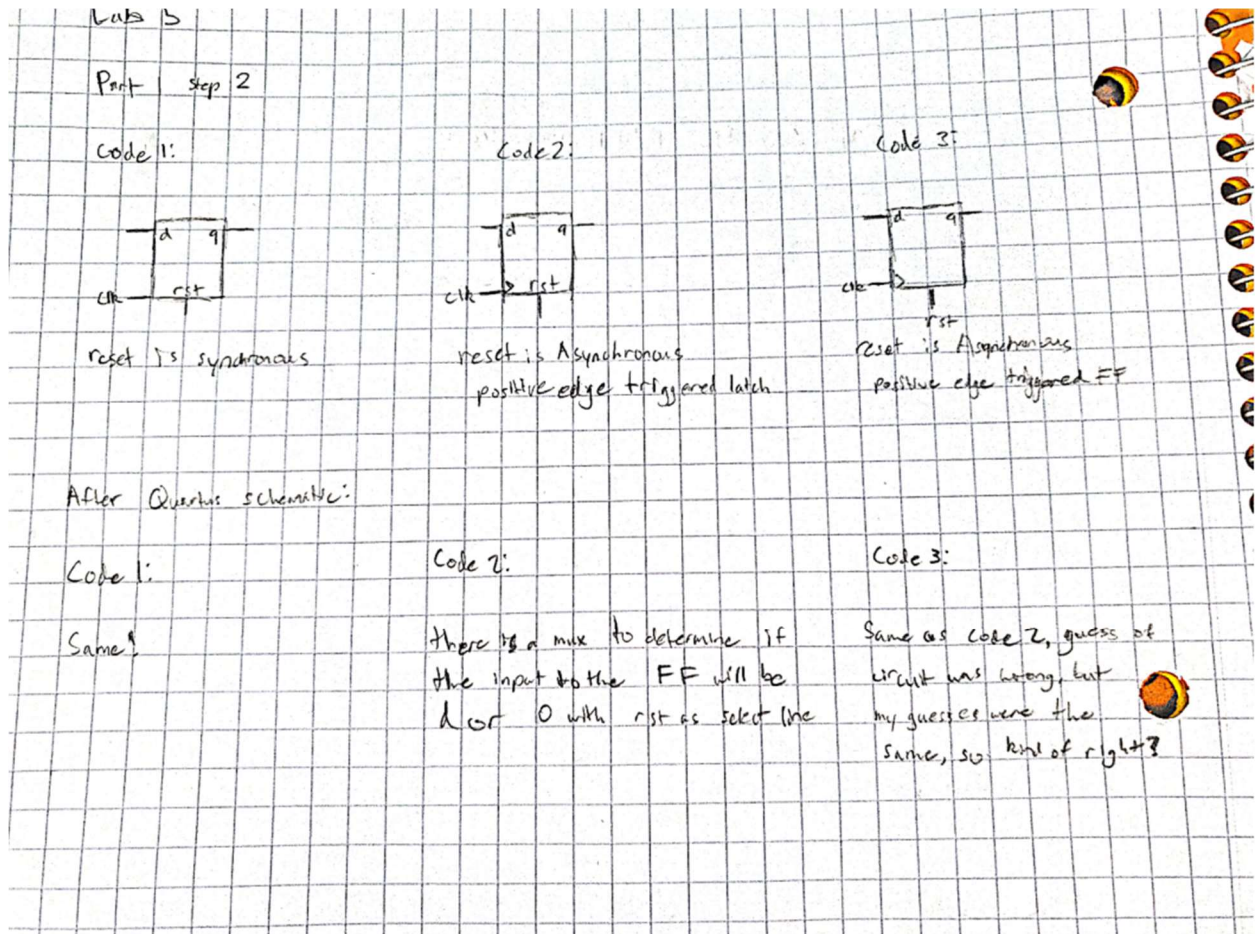 Lab 3
Part 1 step 2
Code 1:
Code 2:
Code 3:
d q
rst
clk
d q
rst
clk
d q
clk
rst
reset is synchronous
reset is Asynchronous
positive edge triggered latch
reset is Asynchronous
positive edge triggered FF
After Quartus schematic:
Code 1:
Same!
Code 2:
there is a mux to determine if
the input to the FF will be
d or 0 with rst as select line
Code 3:
Same as code 2, guess of
circuit was wrong, but
my guesses were the
same, so kind of right?